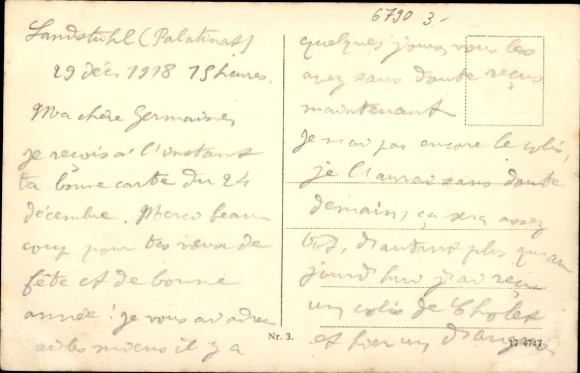 6790 3.-
Landstuhl (Palatinat)
29 déc 1918 15 heures.
Ma chère Germaine,
je reçois à l'instant
ta bonne carte du 24
décembre. Merci beau-
coup pour tes vœux de
fête et de bonne
année! je vous ai adres-
sé les miens il y a
quelques jours, vous les
avez sans doute reçus
maintenant
Je n'ai pas encore le colis,
je l'aurai sans doute
demain, ça sera assez
tôt, d'autant plus qu'au-
jourd'hui j'ai reçu
un colis de Cholet
et hier un d'Angers
Nr. 3.
17 4747